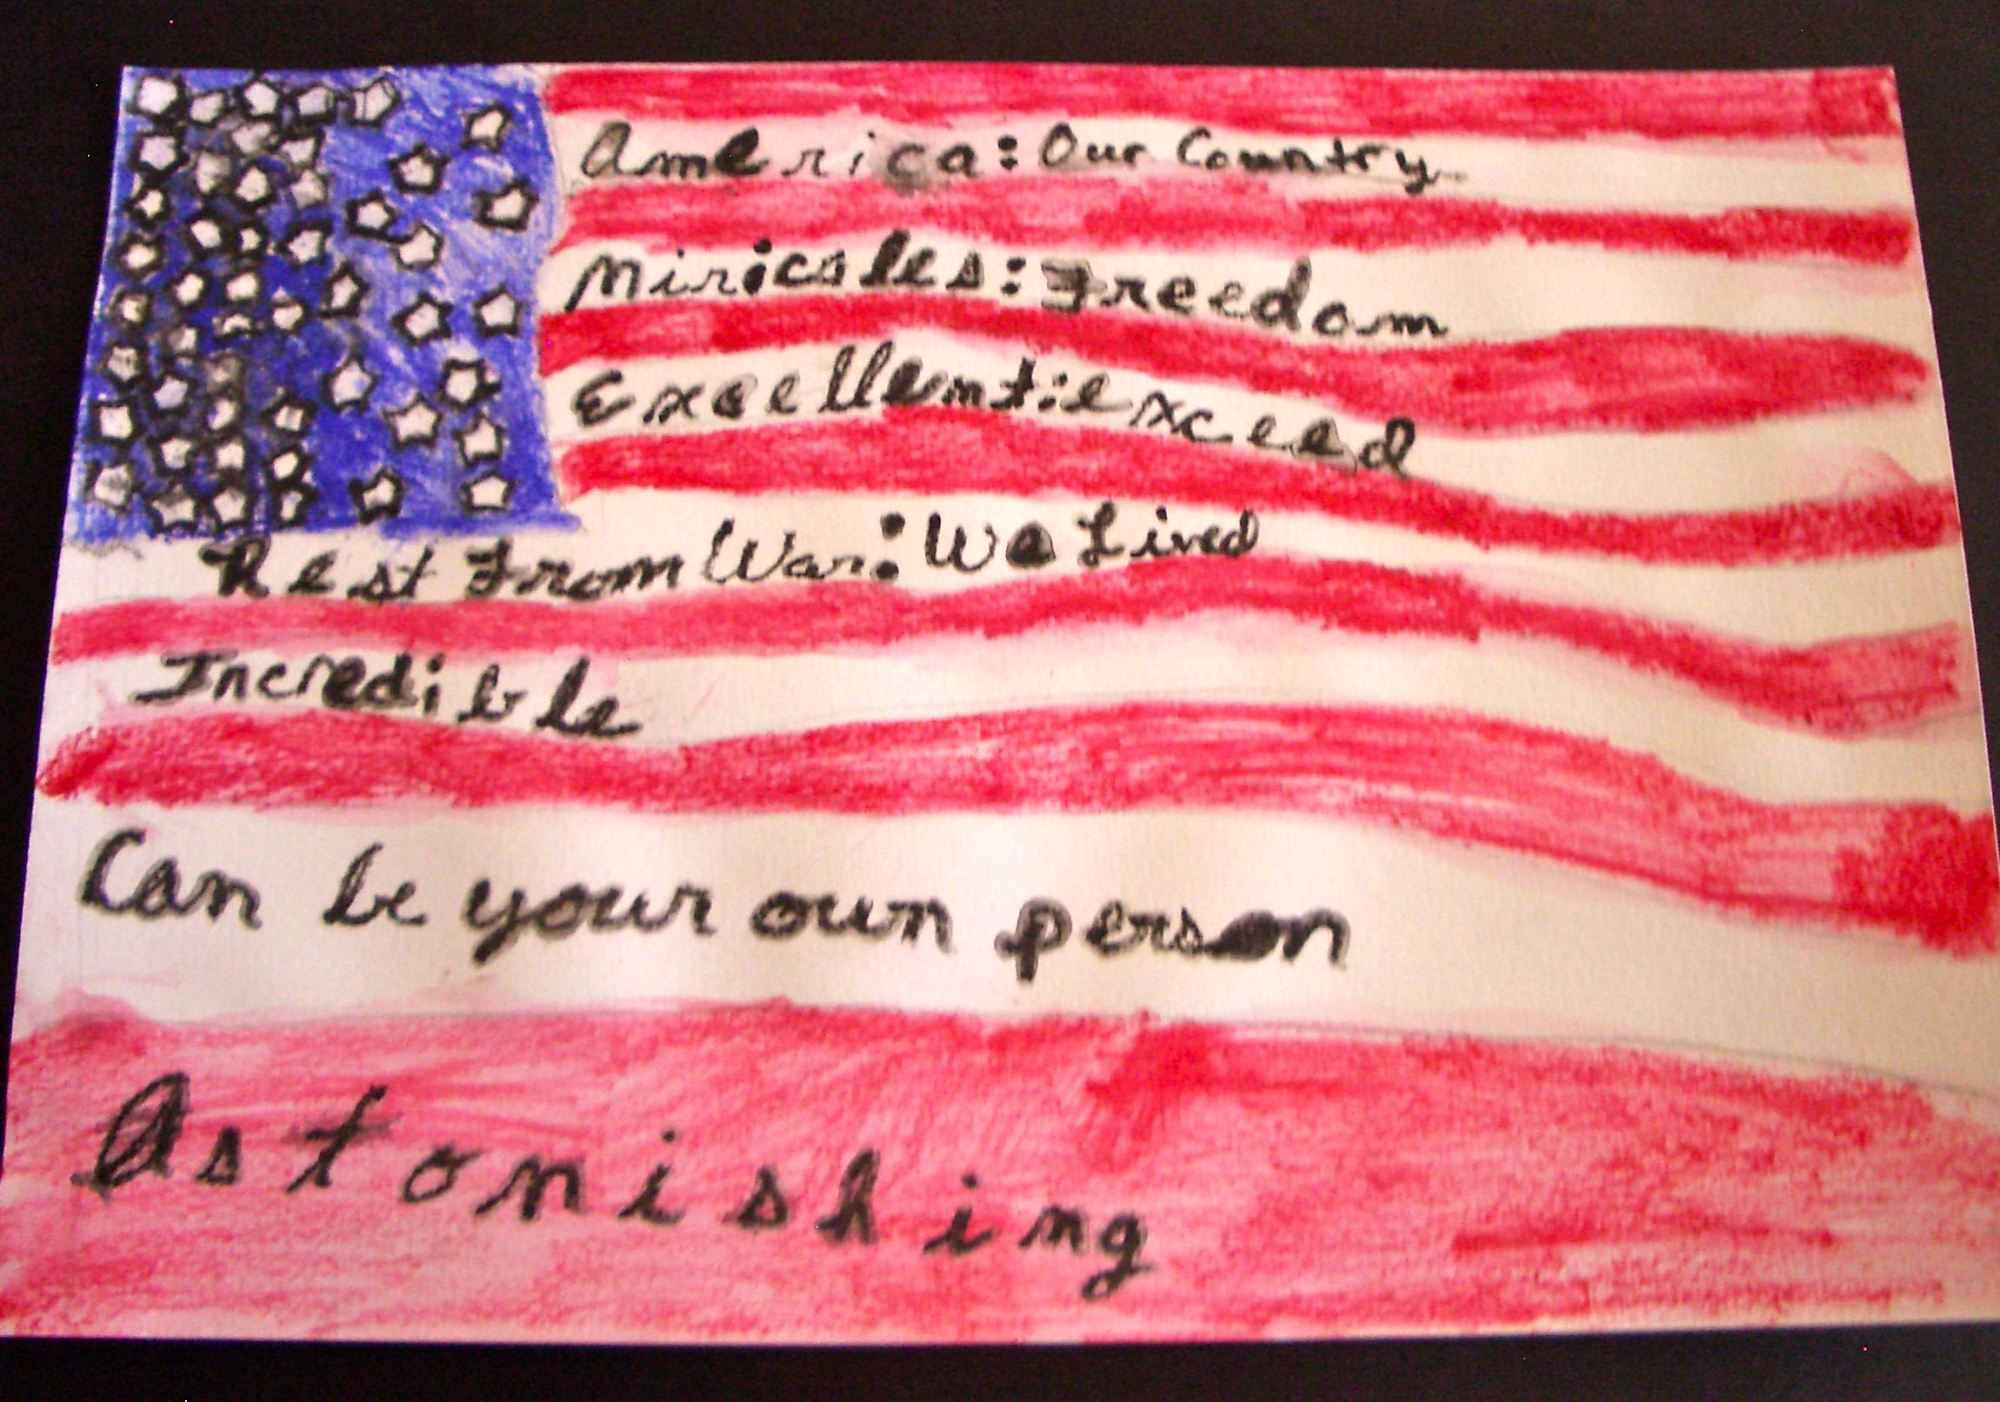 America: Our Country
Miricales: Freedom
Excellent: exceed
Rest From War: We Lived
Incredible
Can be your own person
Astonishing